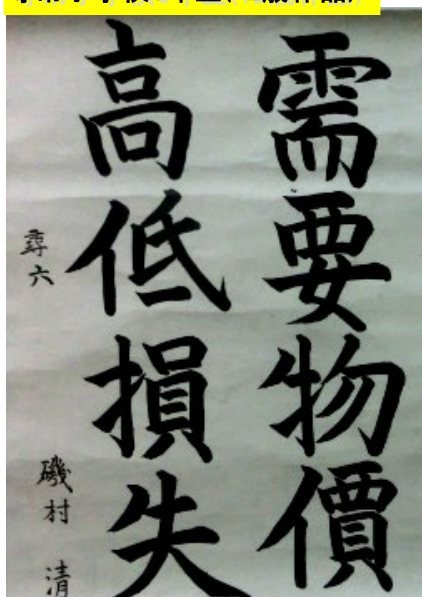 需要物價
高低損失
尋六
磯村 清